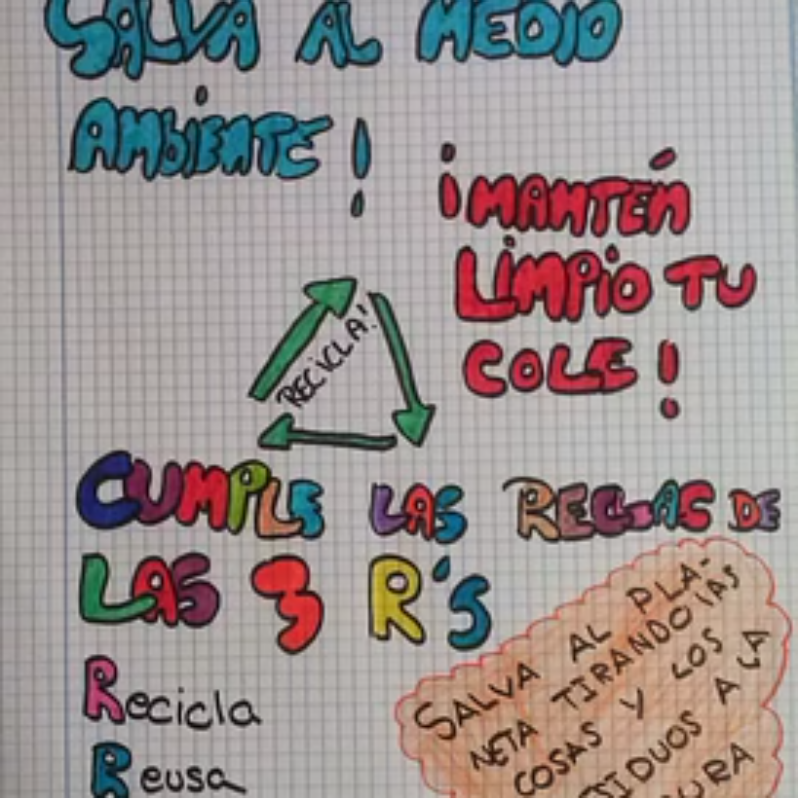 SALVA AL MEDIO
AMBIENTE!
¡MANTÉN
LIMPIO TU
COLE!
RECICLA!
CUMPLE LAS REGLAS DE
LAS 3 R'S
Recicla
Reusa
SALVA AL PLA-
NETA TIRANDO LAS
COSAS Y LOS
A LA